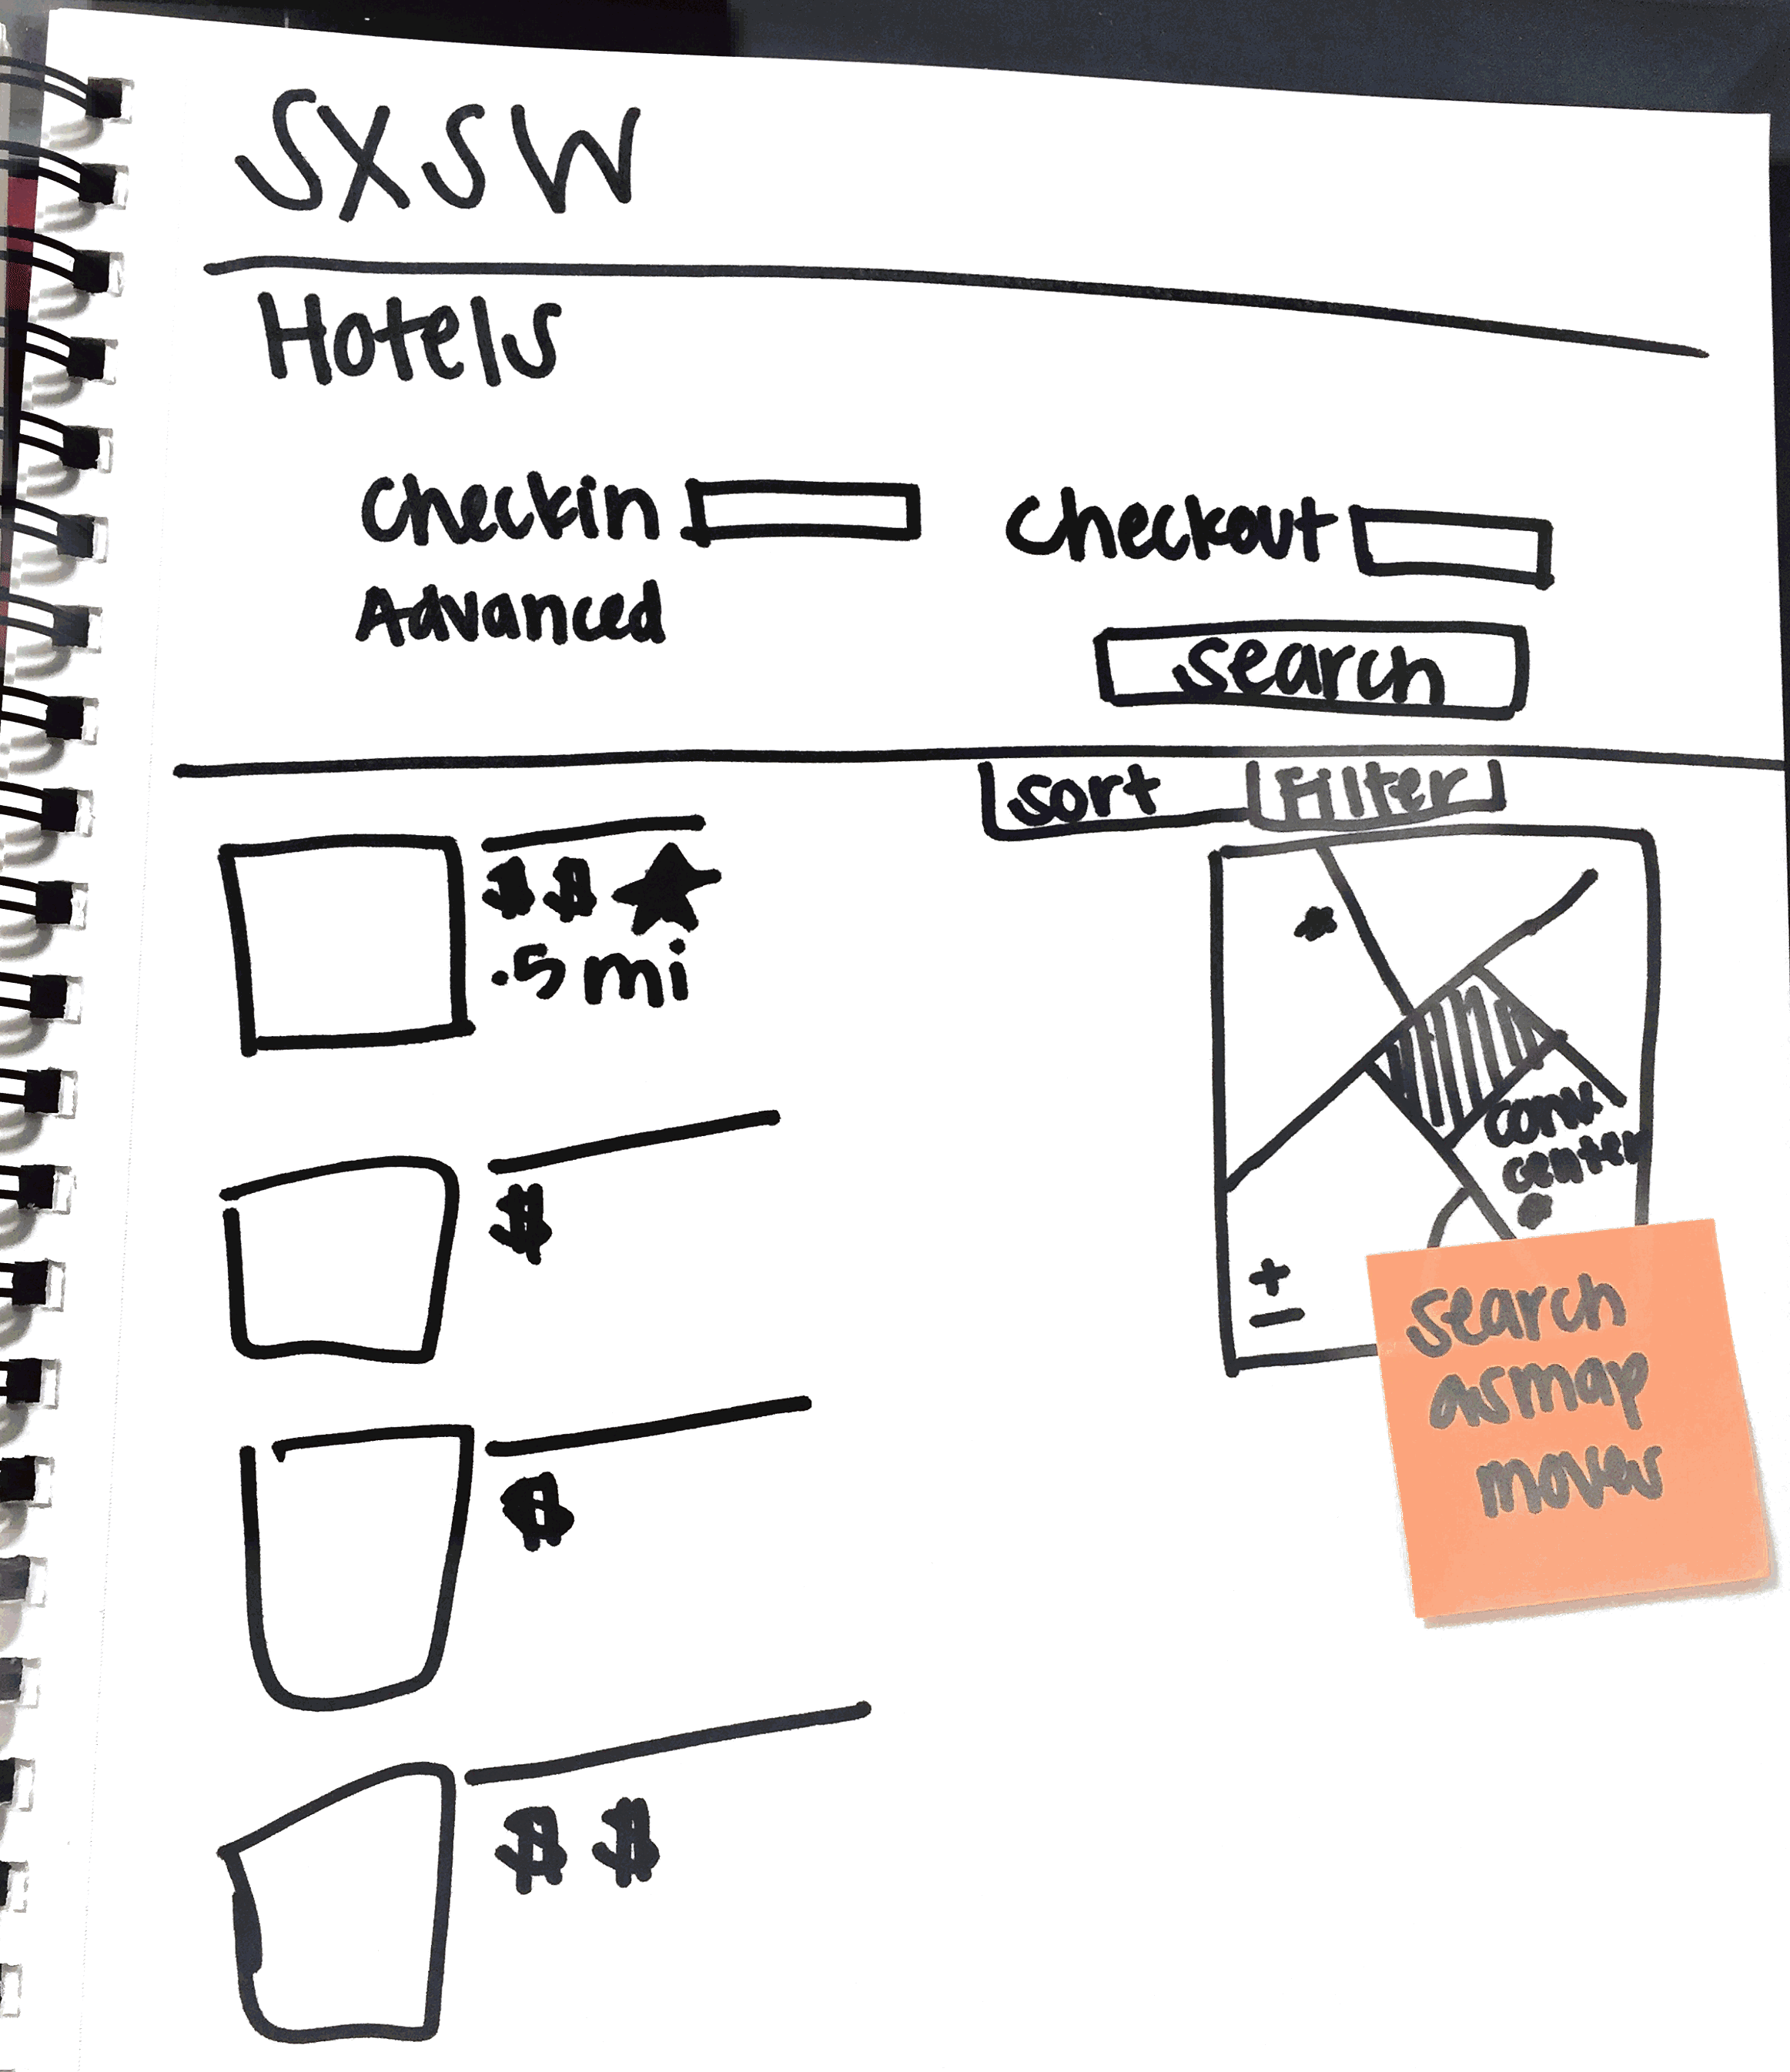 SXSW
Hotels
Checkin
Checkout
Advanced
Search
Sort
Filter
$$★
.5 mi
$
$
$$
conv.
center
+
−
search
as map
moves